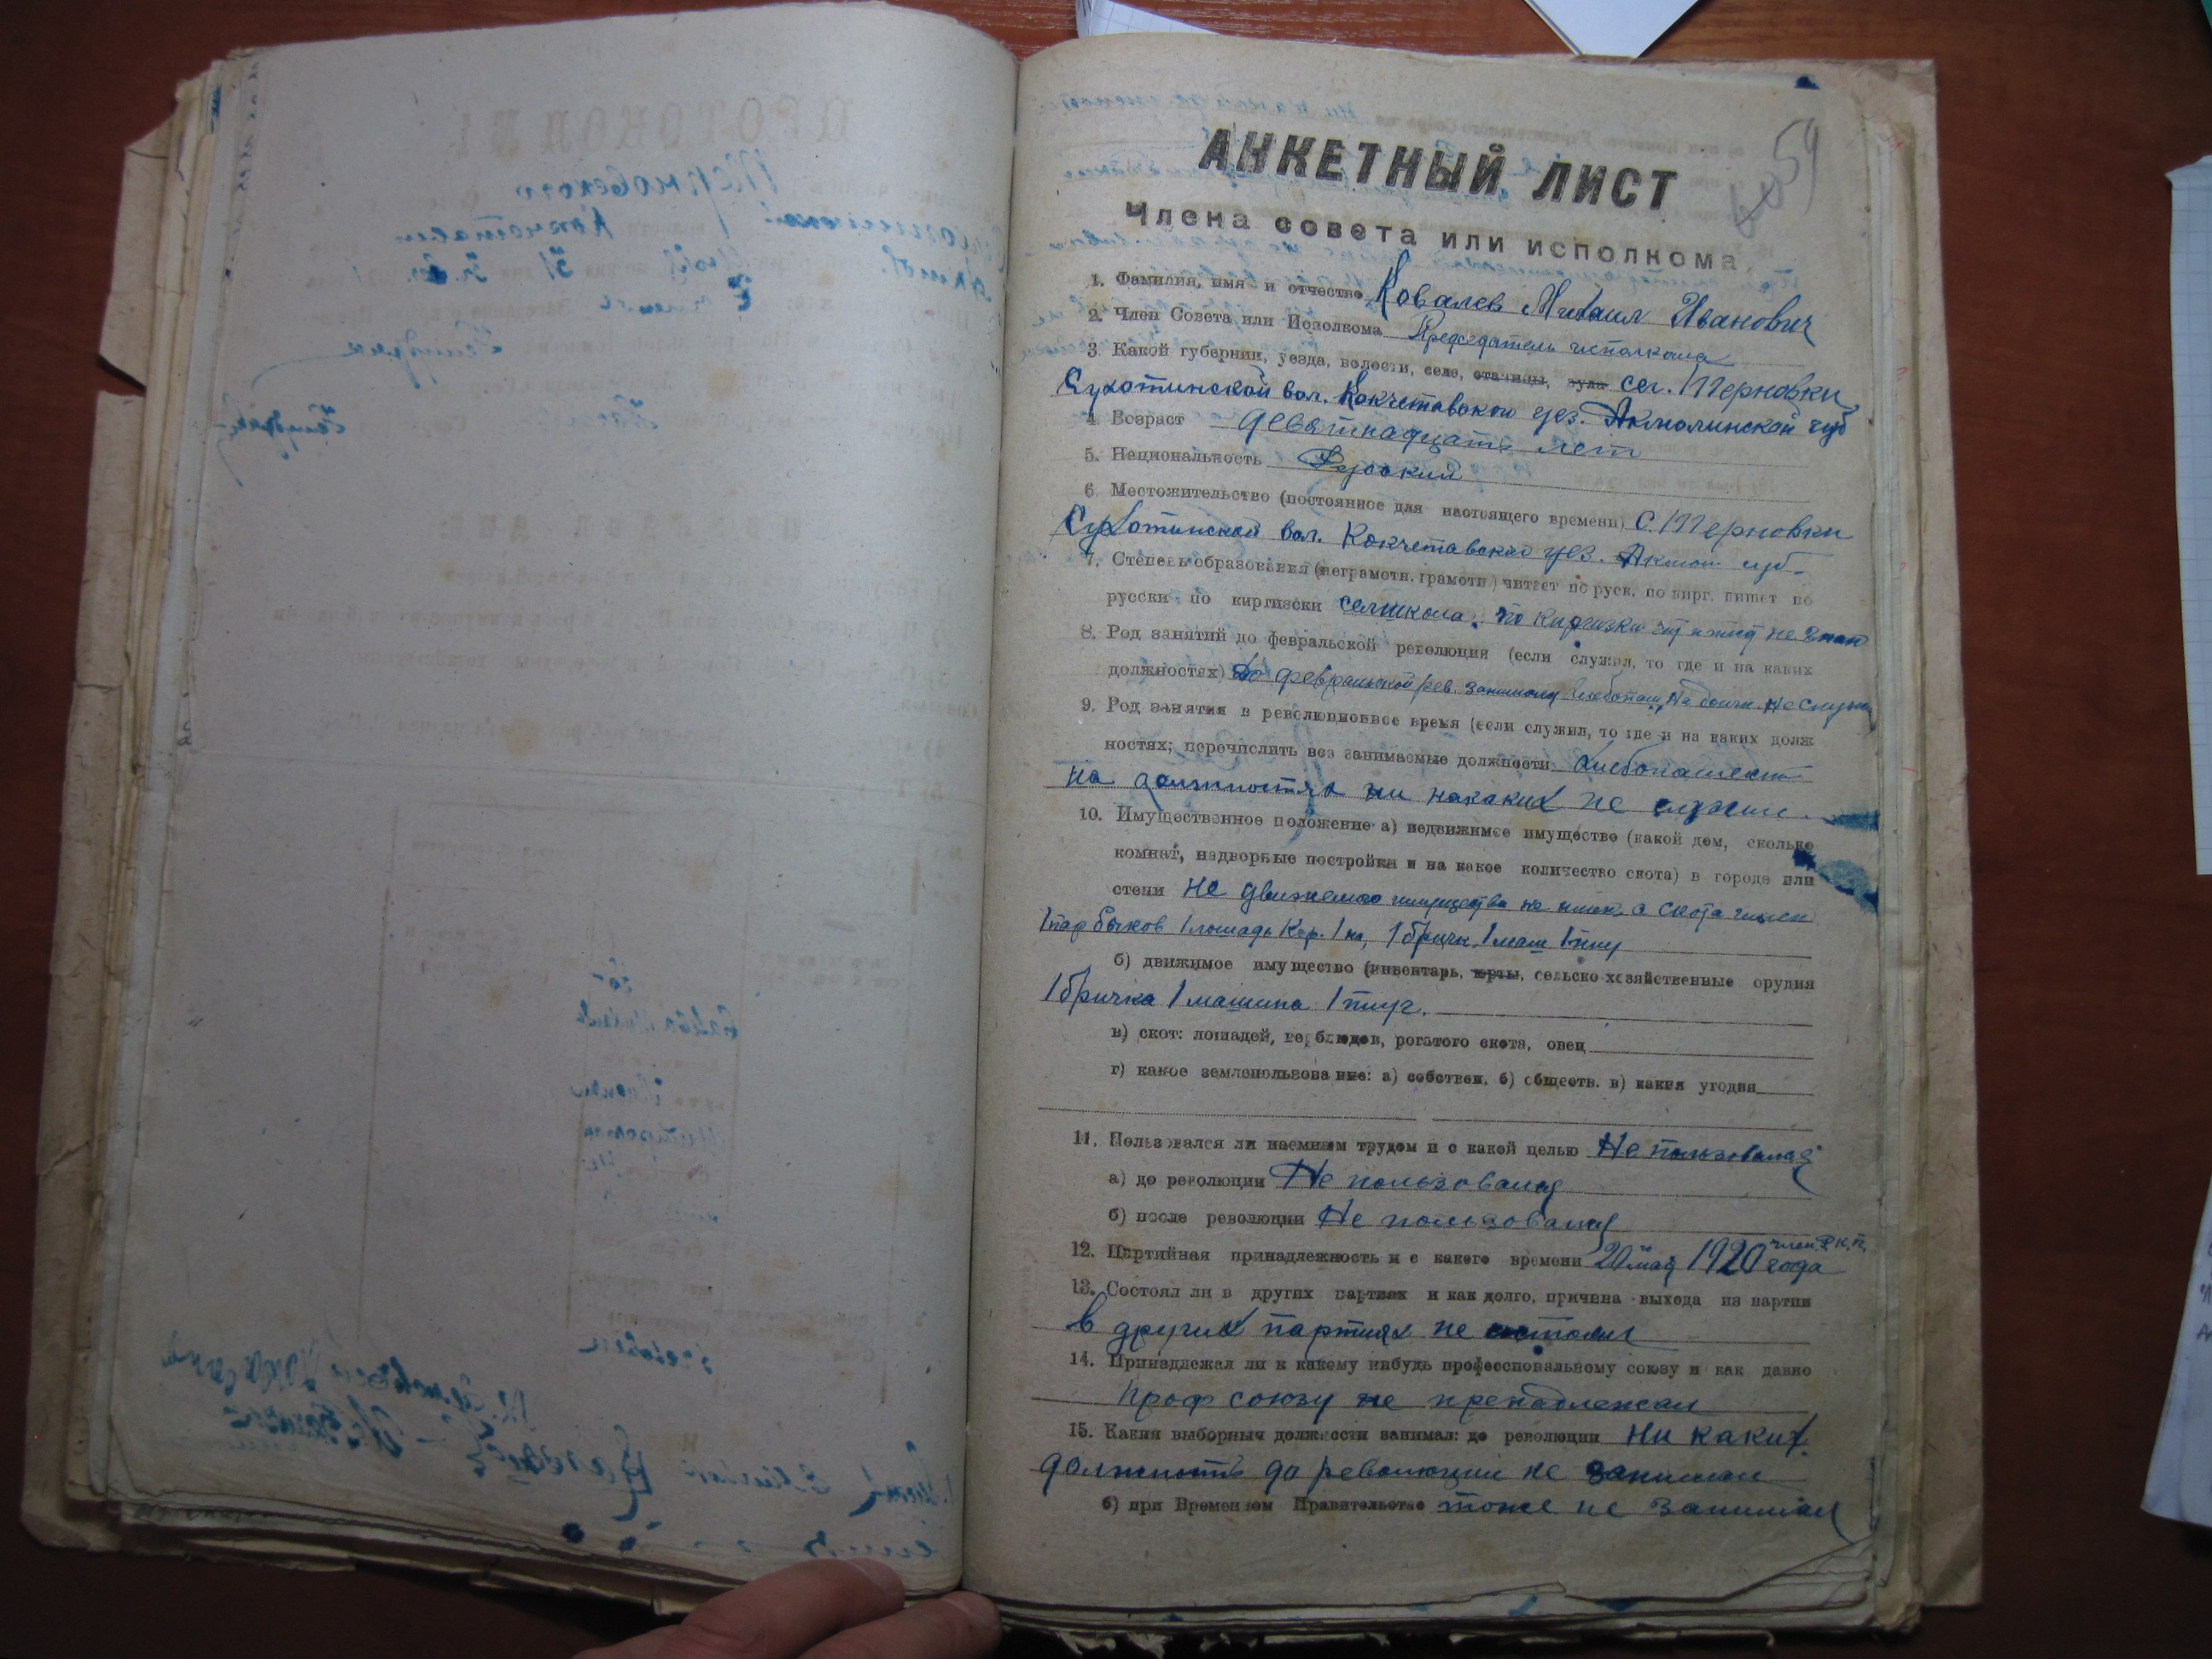 59
АНКЕТНЫЙ ЛИСТ
Члена совета или исполкома
1. Фамилия, имя и отчество Ковалев Михаил Иванович
2. Член Совета или Исполкома Председатель исполкома
3. Какой губернии, уезда, волости, села, станицы, аула сел. Терновки
Сухотинской вол. Кокчетавского уез. Акмолинской губ
4. Возраст девятнадцать лет
5. Национальность Русский
6. Местожительство (постоянное для настоящего времени) с. Терновки
Сухотинской вол. Кокчетавского уез. Акмол губ-
7. Степень образования (неграмотн. грамотн.) читает по руск. по кирг. пишет по
русски по киргизски селшкола, по киргизки чит и пис не знаю
8. Род занятий до февральской революции (если служил, то где и на каких
должностях) До февральской рев. занимался хлебопаш, На должн не служил
9. Род занятия в революционное время (если служил, то где и на каких долж
ностях; перечислить все занимаемые должности Хлебопашест
на должностях ни накаких не служил.
10. Имущественное положение а) недвижимое имущество (какой дом, сколько
комнат, надворные постройки и на какое количество скота) в городе или
степи Не движемаго имущества не имею, а скота
1 пар быков 1 лошадь Кор. 1 на, 1 бричк. 1 маш 1 плуг
б) движимое имущество (инвентарь, юрты, сельско-хозяйственные орудия
1 бричка 1 машина 1 плуг.
в) скот: лошадей, верблюдов, рогатого скота, овец
г) какое землепользование: а) собствен. б) обществ. в) какия угодия
11. Пользовался ли наемным трудом и с какой целью Не пользовался
а) до революции Не пользовался
б) после революции Не пользовался
12. Партийная принадлежность и с какого времени 20 мая 1920 года член Р.К.П.
13. Состоял ли в других партиях и как долго, причина выхода из партии
в других партиях не состоял
14. Принадлежал ли к какому нибудь профессиональному союзу и как давно
проф союзу не пренадлежал
15. Какия выборныя должности занимал: до революции Ни каких
должность до революции не занимал
б) при Временном Правительстве тоже не занимал